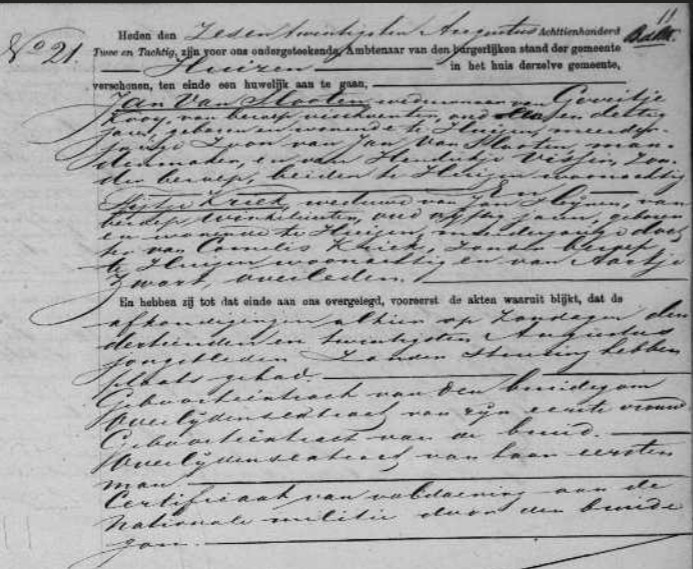 11
No 21.
Heden den Zesen twintigsten Augustus Achttienhonderd
Twee en Tachtig, zijn voor ons ondergeteekende, Ambtenaar van den burgerlijken stand der gemeente
Huizen in het huis derzelve gemeente,
verschenen, ten einde een huwelijk aan te gaan,
Jan Van Slooten weduwnaar van Goveitje
Kooy, van beroep vischventer, oud en dertig
jaren, geboren en wonende te Huizen, meerder-
jarige Zoon van Jan Van Slooten, man-
denmaker, en van Hendrikje Visser, Zon-
der beroep, beiden te Huizen woonachtig
En
Kriek, weduwe van Jan Heijnen, van
beroep winkelierster, oud vijftig jaren, geboren
en wonende te Huizen, meerderjarige doch-
ter van Cornelis Kriek, Zonder beroep
te Huizen woonachtig en van Aartje
Zwart, overleden.
En hebben zij tot dat einde aan ons overgelegd, vooreerst de akten waaruit blijkt, dat de
afkondigingen alhier op Zondagen den
dertienden en twintigsten Augustus
jongstleden Zonder stuiting hebben
plaats gehad.
Geboorteextract van den bruidegom
Overlijdensextract van zijn eerste vrouw
Geboorteextract van de bruid.
Overlijdensextract van haar eersten
man
Certificaat van voldoening aan de
Nationale militie door den bruide
gom.